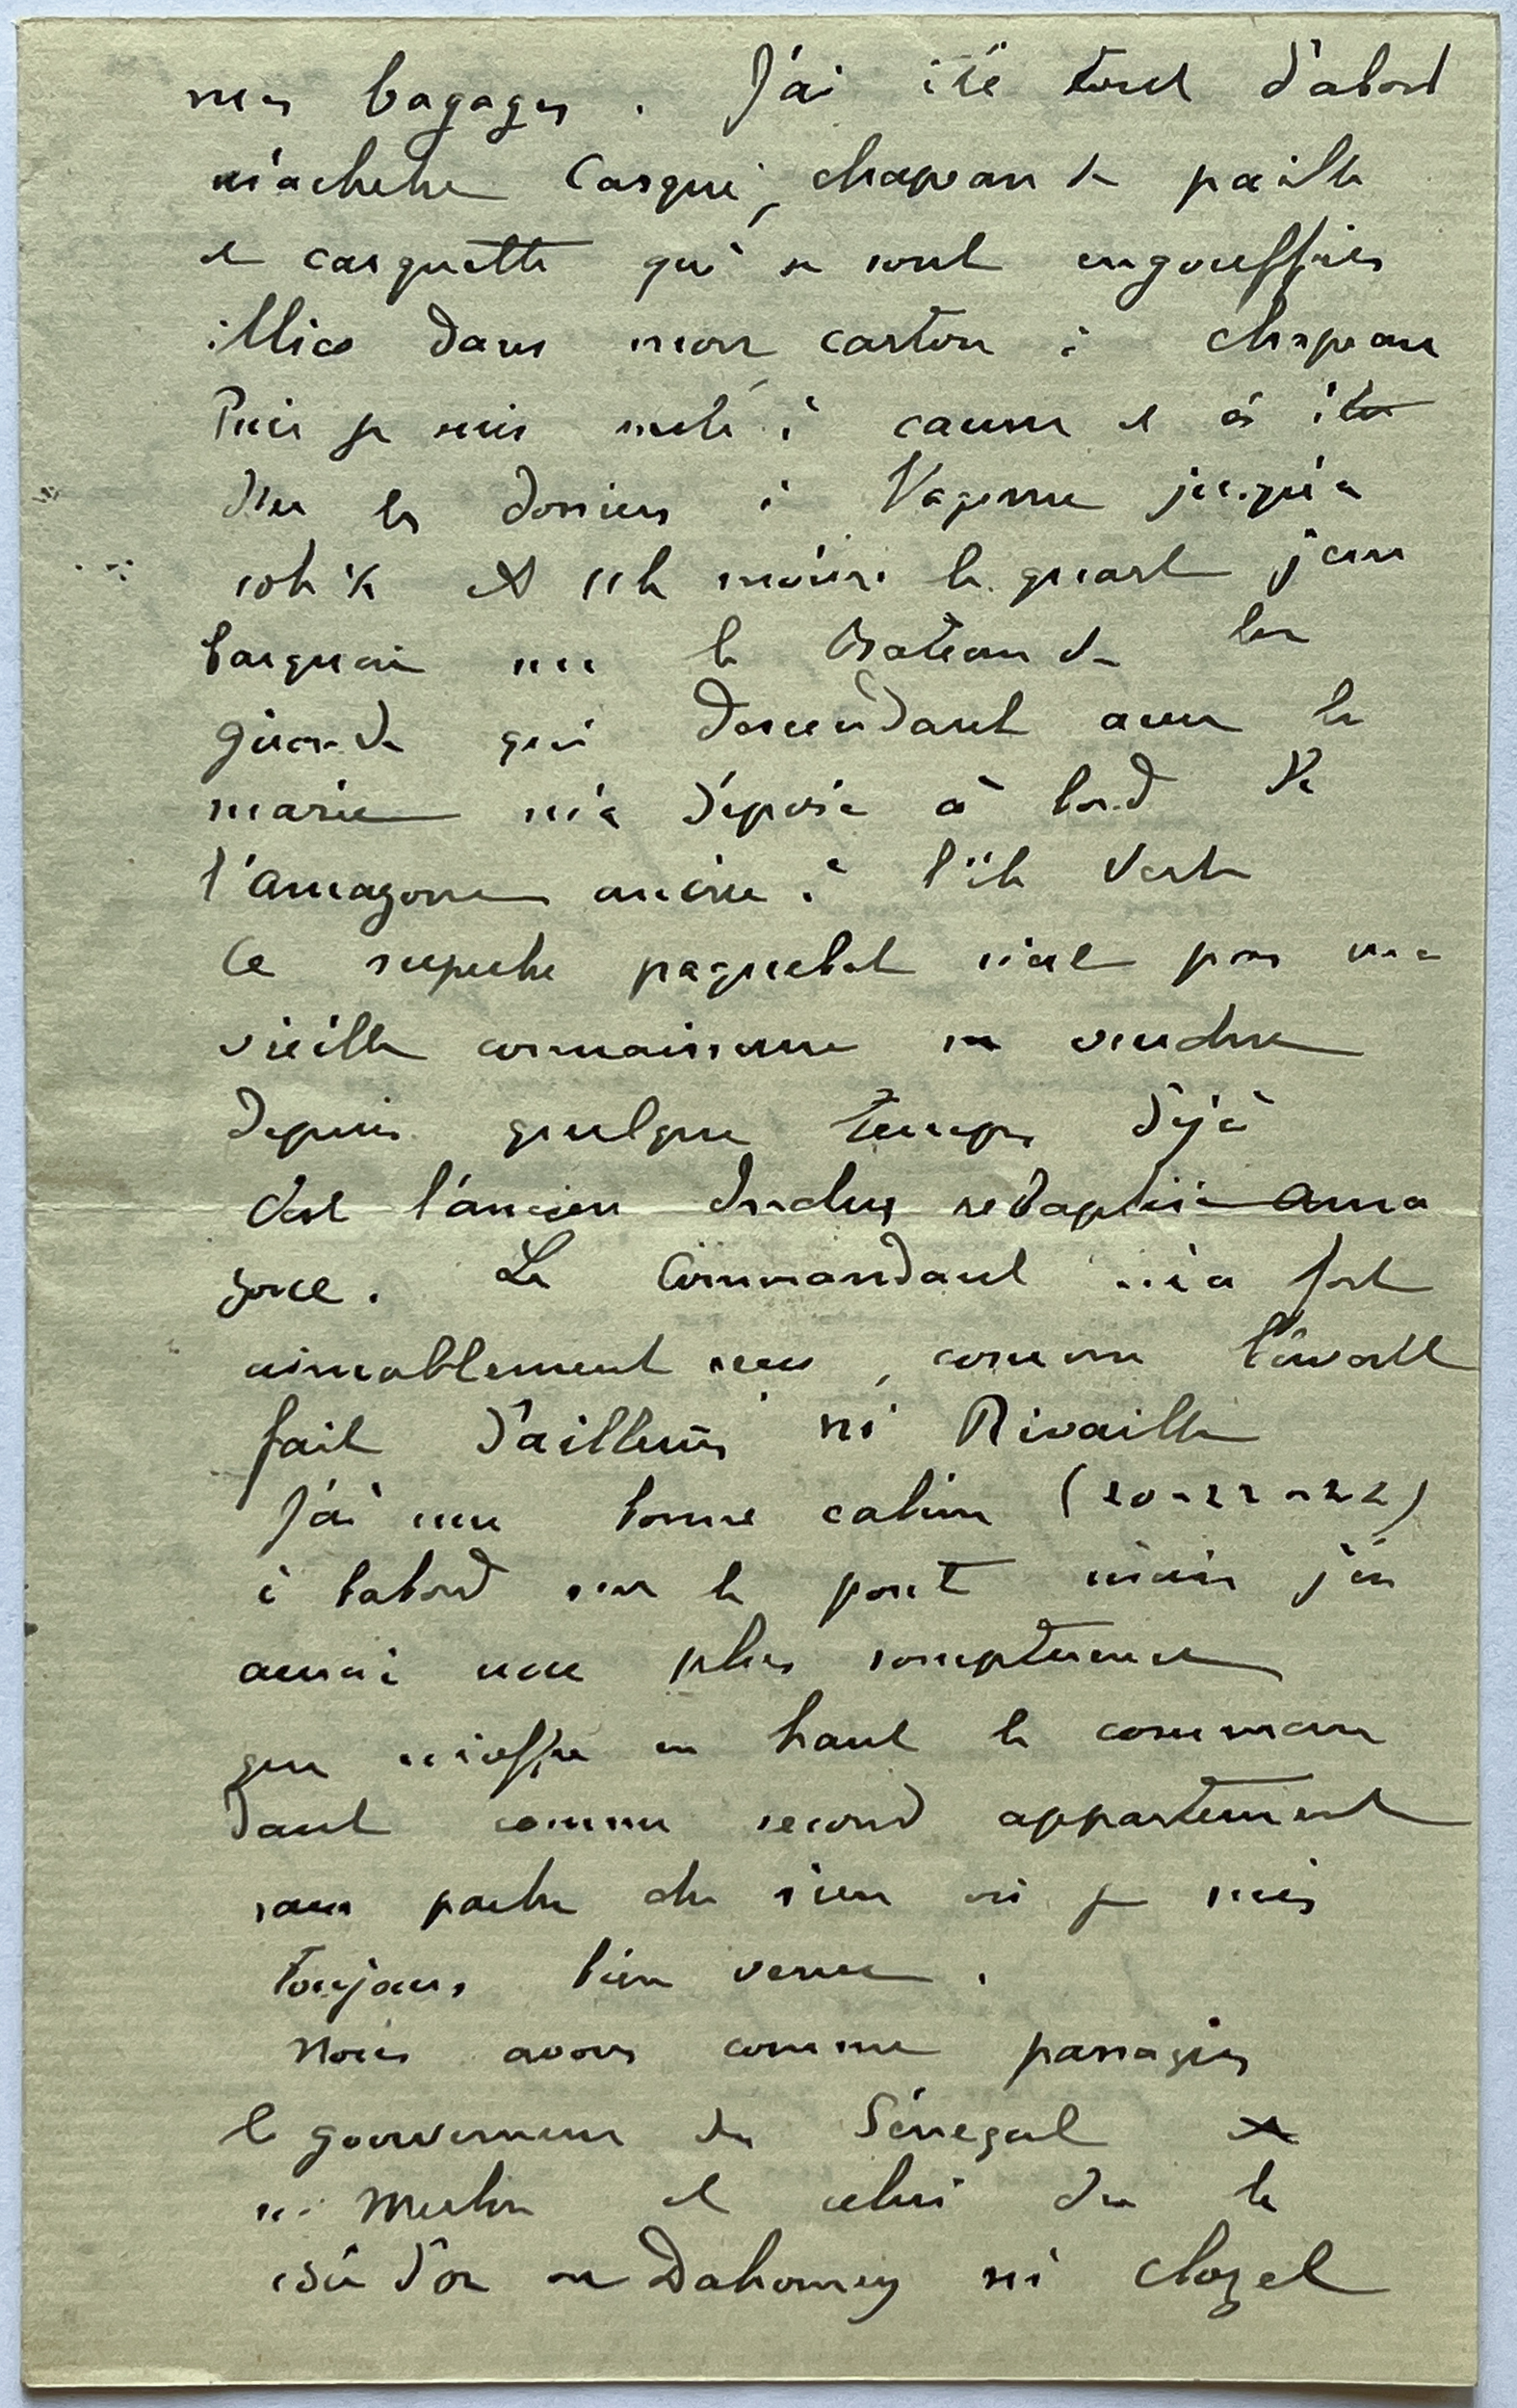 mes bagages. J'ai été tout d'abord
m'acheter casque, chapeau de paille
et casquette qui se sont engouffrés
illico dans mon carton à chapeau
Puis je suis resté à causer et à
les à jusqu'à
10h ½ et à 11h moins le quart j'em
barquai sur le Bateau de la
Gironde qui descendant avec la
marée m'a déposé à bord de
l'Amazone ancré à l'île Verte
Ce superbe paquebot n'est pas une
vieille connaissance
Depuis quelque temps déjà
C'est l'ancien Indus rebaptisé Ama
zone. Le Commandant m'a fort
aimablement reçu, comme l'avait
fait d'ailleurs mr Rivaille
J'ai une bonne cabine (20-21-22)
à babord sur le pont mais j'en
aurai une plus somptueuse
que m'offre en haut le comman
dant comme second appartement
sans parler du sien où je suis
toujours bien venu.
Nous avons comme passagers
le gouverneur du Sénégal
mr Merlin et celui de la
côte d'or ou Dahomey mr Clozel